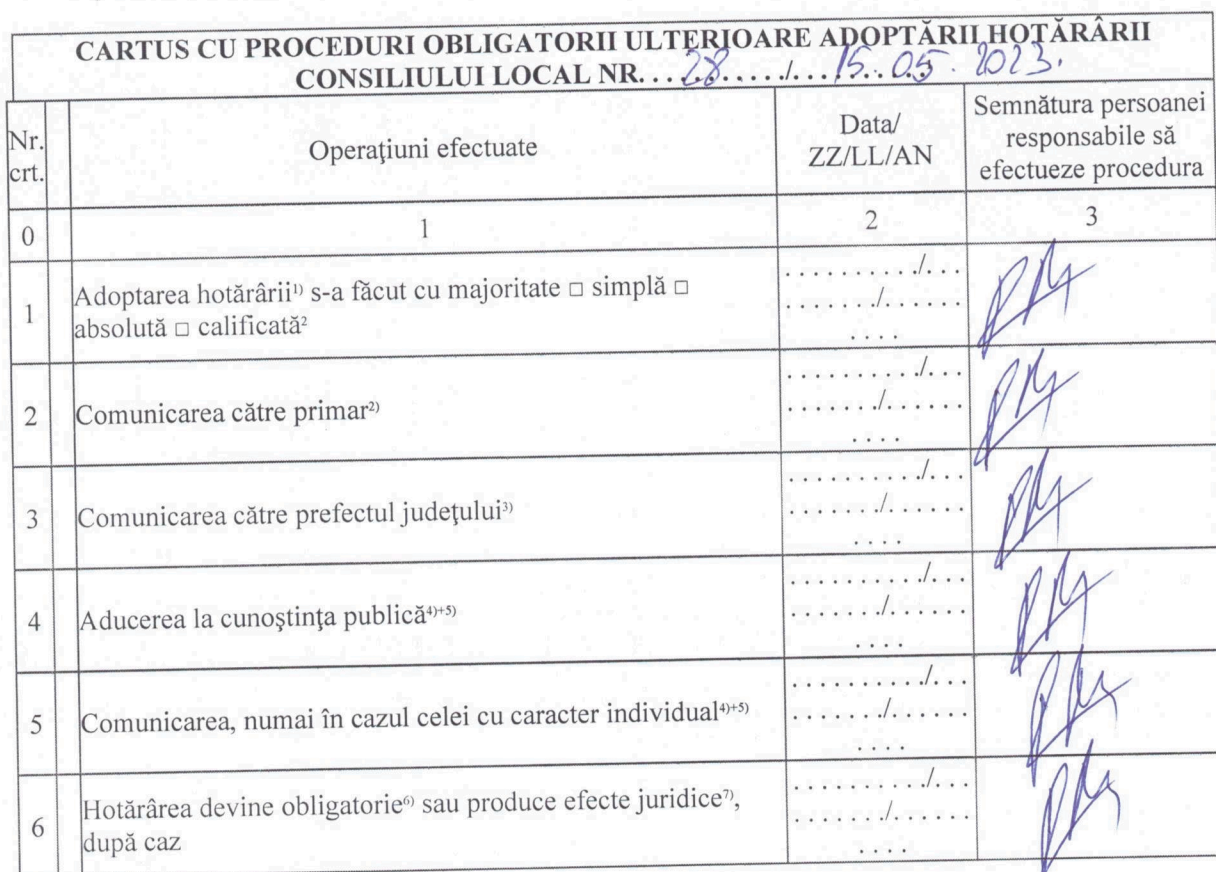 CARTUS CU PROCEDURI OBLIGATORII ULTERIOARE ADOPTĂRII HOTĂRÂRII
CONSILIULUI LOCAL NR. . . . 28 . . . . ./. . . 15 . 05 . 2023.
Nr. crt.
Operaţiuni efectuate
Data/ ZZ/LL/AN
Semnătura persoanei responsabile să efectueze procedura
0
1
2
3
1
Adoptarea hotărârii¹⁾ s-a făcut cu majoritate □ simplă □
absolută □ calificată²
. . . . . . . . . . ./. . .
. . . . . . ./. . . . . .
. . . .
2
Comunicarea către primar²⁾
. . . . . . . . . . ./. . .
. . . . . . ./. . . . . .
. . . .
3
Comunicarea către prefectul judeţului³⁾
. . . . . . . . . . ./. . .
. . . . . . ./. . . . . .
. . . .
4
Aducerea la cunoştinţa publică⁴⁾⁺⁵⁾
. . . . . . . . . . ./. . .
. . . . . . ./. . . . . .
. . . .
5
Comunicarea, numai în cazul celei cu caracter individual⁴⁾⁺⁵⁾
. . . . . . . . . . ./. . .
. . . . . . ./. . . . . .
. . . .
6
Hotărârea devine obligatorie⁶⁾ sau produce efecte juridice⁷⁾,
după caz
. . . . . . . . . . ./. . .
. . . . . . ./. . . . . .
. . . .